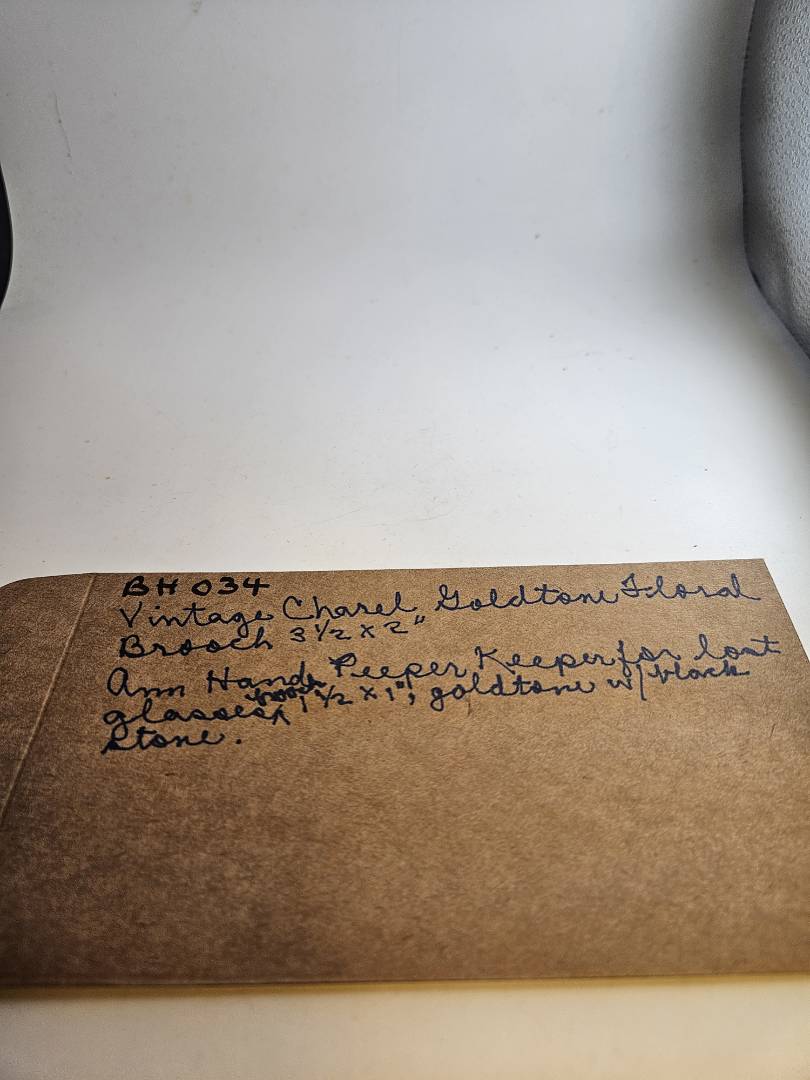 BH 034
Vintage Charel Goldtone Floral
Brooch 3 1/2 x 2"
Ann Hand Peeper Keeper for lost
brooch
glasses, 1 1/2 x 1", goldtone w/ black
stone.